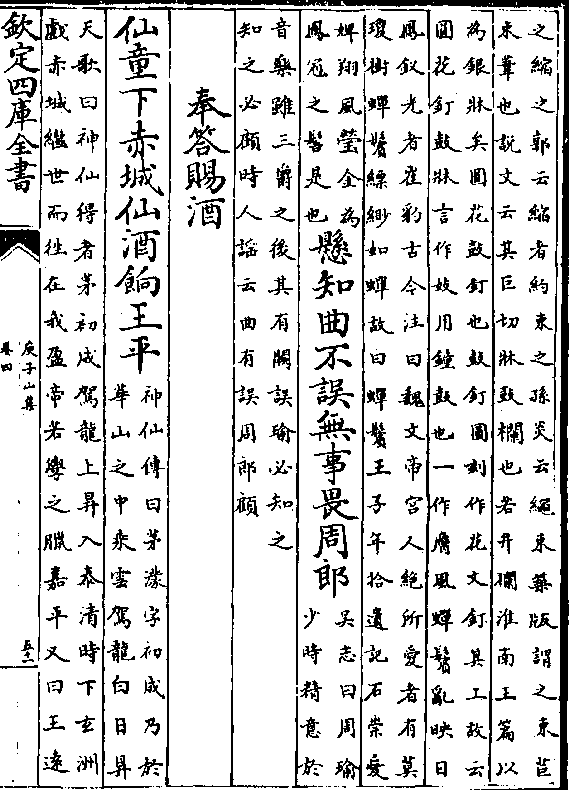 之縮之郭云縮者約束之孫炎云繩束築版謂之束苞
束葦也説文云其巨切牀鼓欄也若井欄淮南王篇以
為銀牀矣圓花鼓釘也鼓釘圓刻作花文釘其工故云
圓花釘鼓牀言作妓用鐘鼓也一作膺風蟬鬢亂映日
鳳釵光者崔豹古今注曰魏文帝宮人絶所愛者有莫
瓊樹蟬鬢縹緲如蟬故曰蟬鬢王子年拾遺記石崇愛
婢翔風瑩金為
鳳冠之髻是也
懸知曲不誤無事畏周郎
吳志曰周瑜
少時精意於
音樂雖三爵之後其有闕誤瑜必知之
知之必顧時人謡云曲有誤周郎顧
奉答賜酒
仙童下赤城仙酒餉王平
神仙傳曰茅濛字初成乃於
華山之中乘雲駕龍白日昇
天歌曰神仙得者茅初成駕龍上昇入泰清時下玄洲
戲赤城繼世而往在我盈帝若學之臘嘉平又曰王遠
欽定四庫全書
庾子山集
卷四